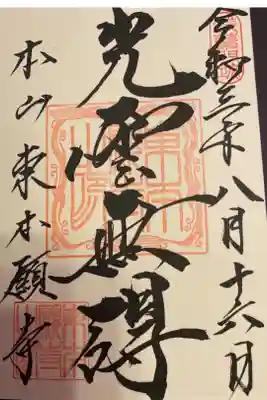 令和三年八月十六日
光雲無碍
本山東本願寺